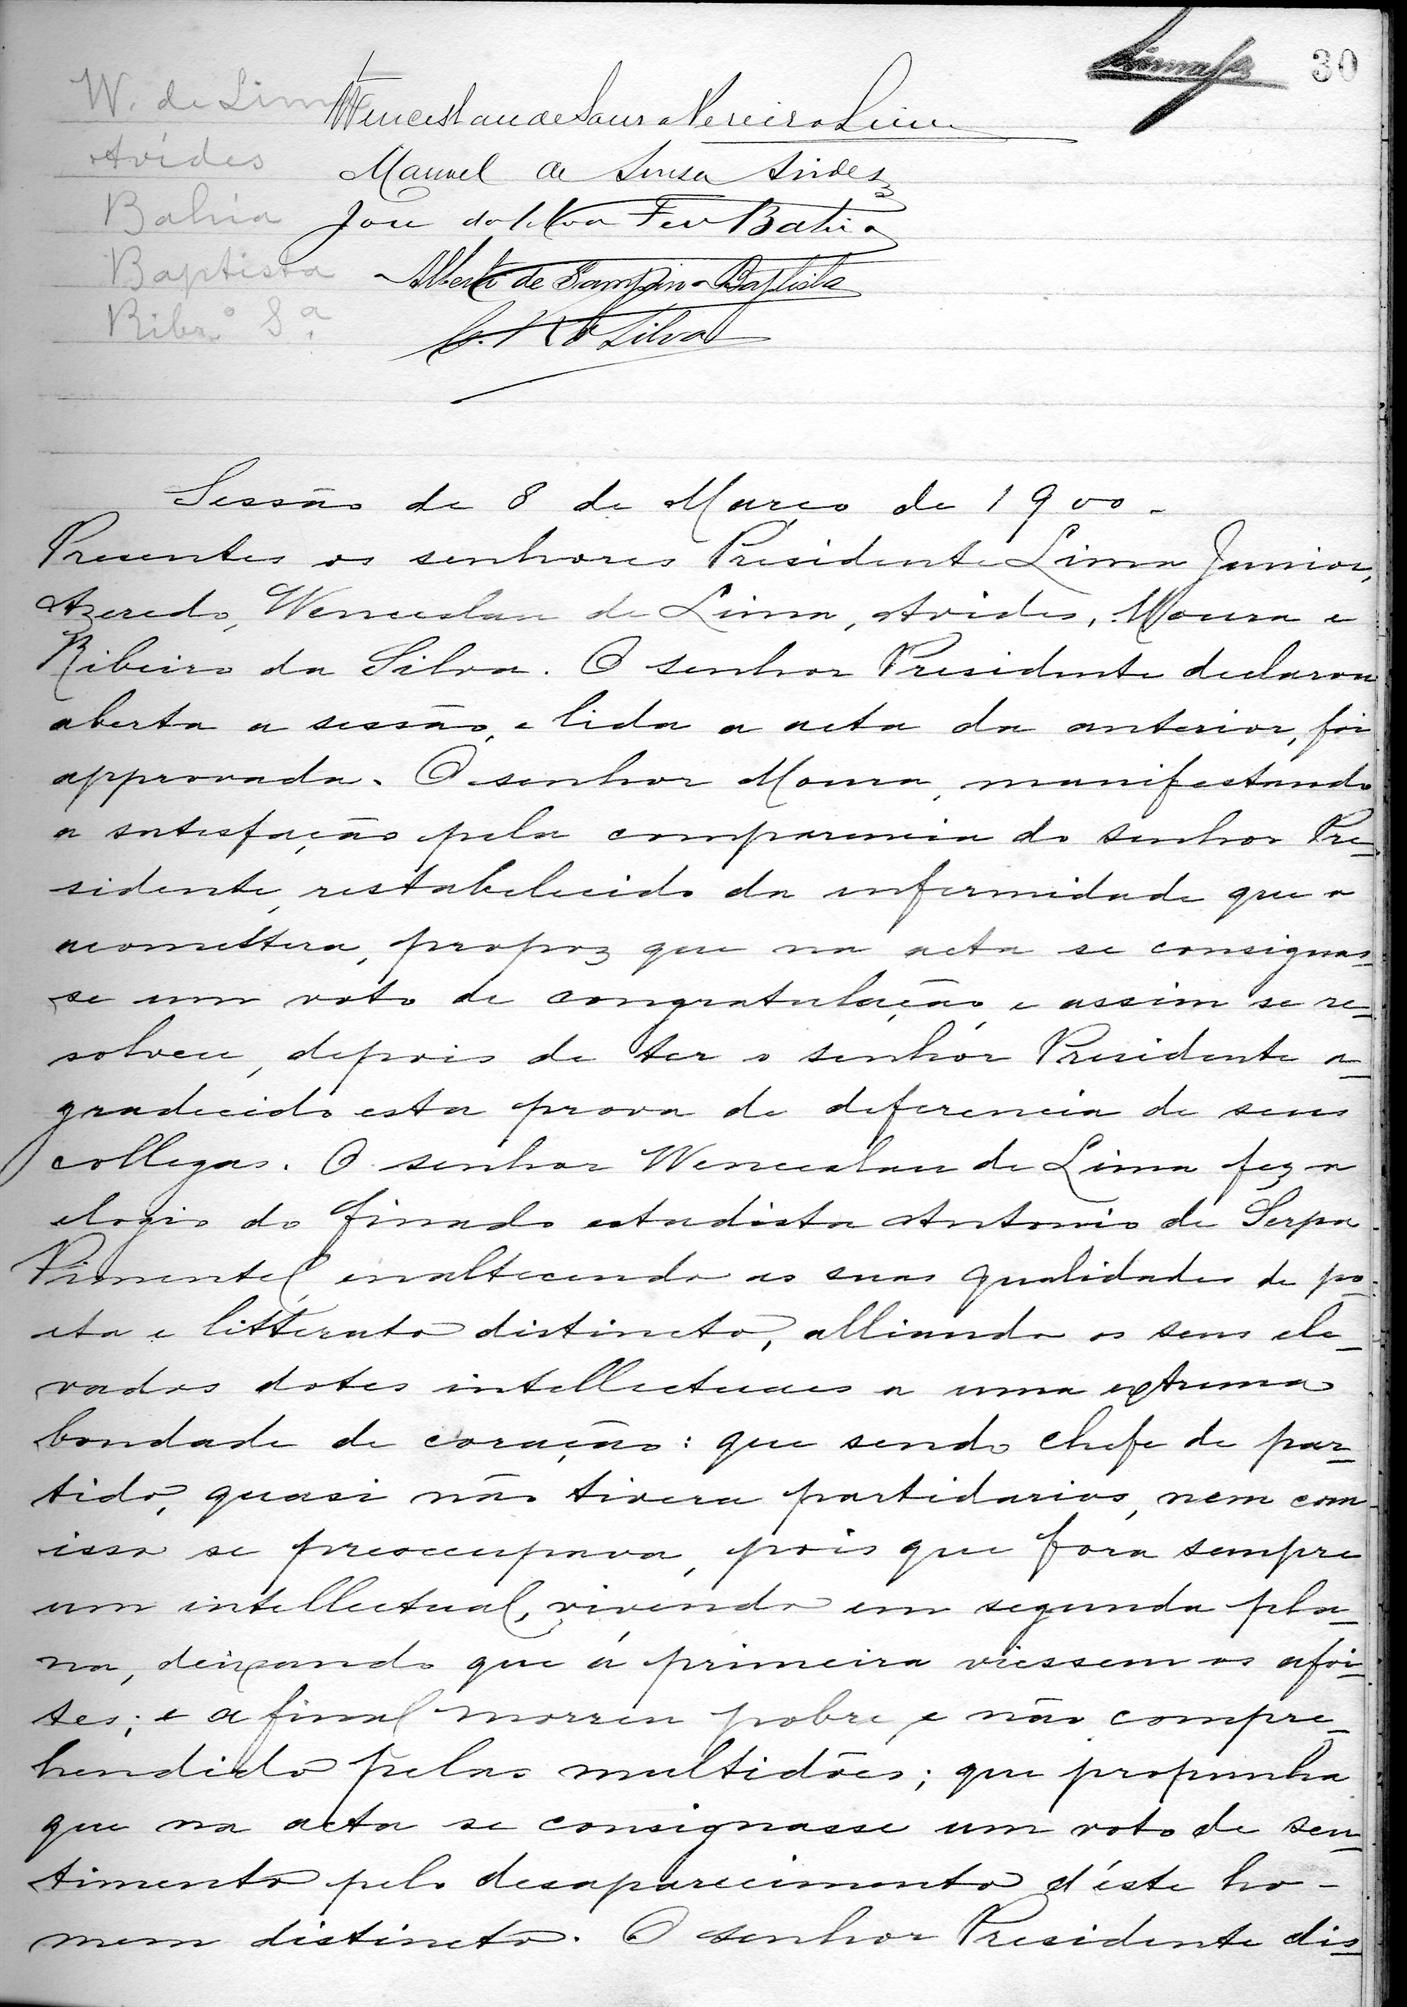 30
W. de Lima
Wenceslau de Sousa Pereira Lima
Avides
Manuel de Sousa Avides
Bahia
José da Silva Ferr Bahia
Baptista
Alberto de Sampaio Baptista
Ribr.º S.ª
C. R da Silva
Sessão de 8 de Março de 1900.
Presentes os senhores Presidente Lima Junior,
Azeredo, Wenceslau de Lima, Avides, Moura e
Ribeiro da Silva. O senhor Presidente declarou
aberta a sessão, e lida a acta da anterior, foi
approvada. O senhor Moura, manifestando
a satisfação pela comparencia do senhor Pre-
sidente, restabelecido da enfermidade que o
acomettera, propoz que na acta se consignas-
se um voto de congratulação, e assim se re-
solveu, depois de ter o senhor Presidente a-
gradecido esta prova de deferencia de seus
collegas. O senhor Wenceslau de Lima fez o
elogio do finado estadista Antonio de Serpa
Pimentel, enaltecendo as suas qualidades de po-
eta e litterato distincto, alliando os seus ele-
vados dotes intellectuaes a uma extrema
bondade de coração: que sendo chefe de par-
tido, quasi não tivera partidarios, nem com
isso se preoccupava, pois que fora sempre
um intellectual, vivendo em segunda pla-
na, deixando que á primeira viessem os afoi-
tes; e a final morreu pobre, e não compre-
hendido pelas multidões; que propunha
que na acta se consignasse um voto de sen-
timento pelo desaparecimento d'éste ho-
mem distincto. O senhor Presidente dis-